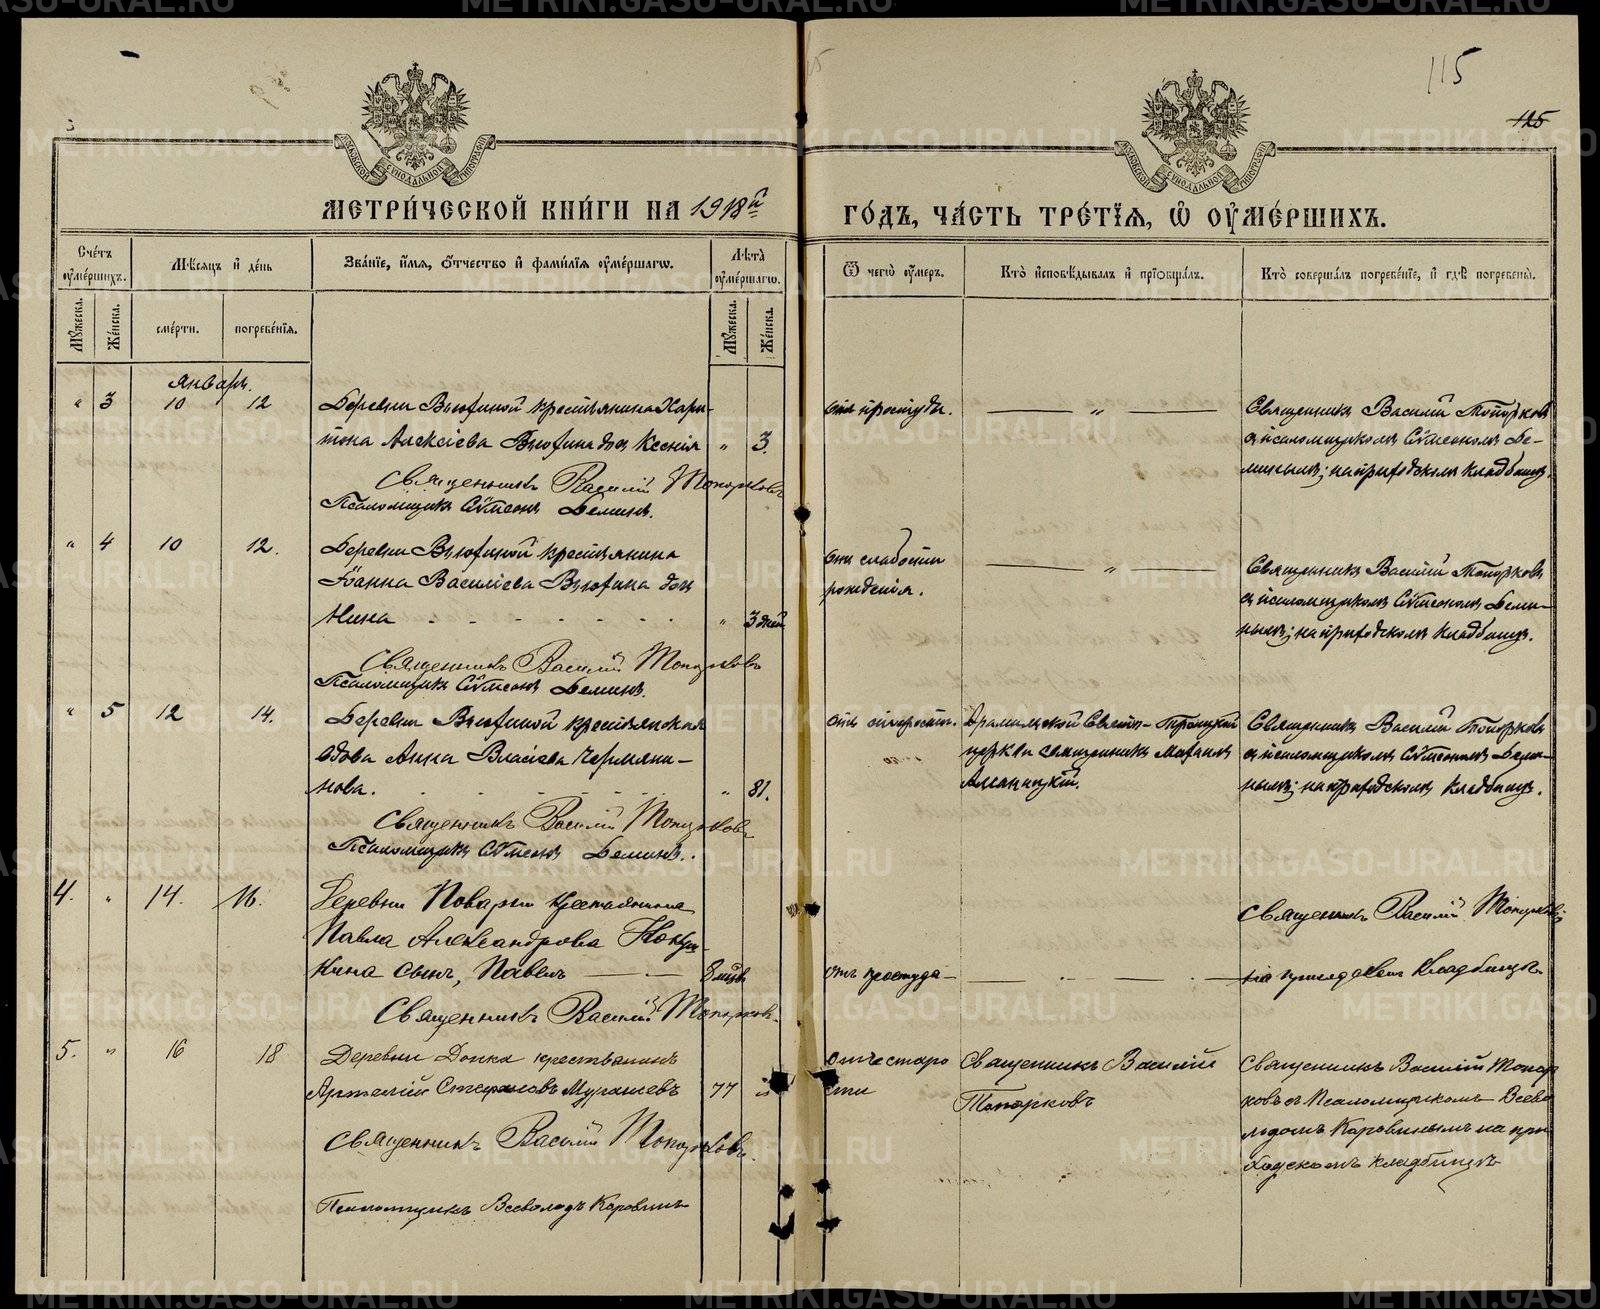 115
125
МЕТРИ́ЧЕСКОЙ КНИ́ГИ НА 1918й
ГО́ДЪ, ЧА́СТЬ ТРЕ́ТІѦ, Ѡ ОУМЕ́РШИХЪ.
Сче́тъ оуме́ршихъ.
Мѣ́сяцъ и де́нь
Зва́нїе, и́мя, ѻ́тчество и фами́лїя оуме́ршагѡ.
Лѣ́та оуме́ршагѡ.
Ѿ чегѡ̀ оу́меръ.
Кто̀ и҆сповѣ́дывалъ и҆ прїѡбща́лъ.
Кто̀ соверша́лъ погребе́нїе, и҆ гдѣ̀ погребены̀.
Му́жеска.
Же́нска.
сме́рти.
погребе́нїя.
Му́жеска.
Же́нска.
Январь.
" 3 10 12
Деревни Вьюхиной крестьянина Хари-
тона Алексіева Вьюхина дочь Ксенія " 3.
Священникъ Василій Топорковъ
Псаломщикъ Сѵмеонъ Деминъ.
отъ простуды.
— " —
Священникъ Василій Топорковъ
съ псаломщикомъ Сѵмеономъ Де-
минымъ; на приходскомъ кладбищѣ.
" 4 10 12.
Деревни Вьюхиной крестьянина
Іоанна Василіева Вьюхина дочь
Нина " 3 дней
Священникъ Василій Топорковъ
Псаломщикъ Сѵмеонъ Деминъ.
отъ слабости
рожденія.
— " —
Священникъ Василій Топорковъ
съ псаломщикомъ Сѵмеономъ Деми-
нымъ; на приходскомъ кладбищѣ.
" 5 12 14.
Деревни Вьюхиной крестьянская
вдова Анна Власіева Чермяни-
нова. " 81.
Священникъ Василій Топорковъ
Псаломщикъ Сѵмеонъ Деминъ.
отъ старости.
Арамильской Свято-Троицкой
церкви священникъ Михаилъ
Священникъ Василій Топорковъ
съ псаломщикомъ Сѵмеономъ Деми-
нымъ; на приходскомъ кладбищѣ.
4. " 14. 16.
Деревни Поварни крестьянина
Павла Александрова
сынъ, Павелъ — 8 мцвъ
Священникъ Василій Топорковъ.
отъ простуда
Священникъ Василій Топорковъ
на приходскомъ кладбище
5. " 16 18
Деревни крестьянинъ
Артемій Стефановъ Мурашевъ 77 "
Священникъ Василій Топорковъ.
Псаломщикъ Всеволодъ Коровинъ
отъ старо
сти
Священникъ Василій
Топорковъ
Священникъ Василій Топор
ковъ съ Псаломщикомъ Всево
лодомъ Коровинымъ на при
ходскомъ кладбищѣ
METRIKI.GASO-URAL.RU